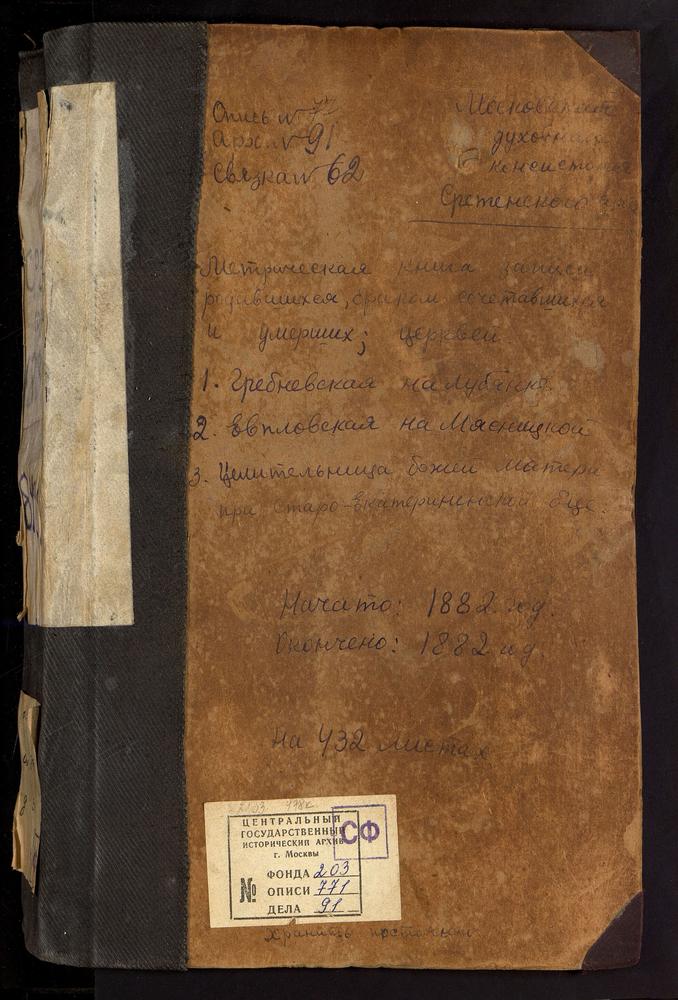 Опись №
Арх. № 91
Связка № 62
Московская
духовная
консистория
Сретенского
Метрическая книга записи
родившихся, браком сочетавшихся
и умерших; церквей
1. Гребневская на Лубянке
2. Евпловская на Мясницкой
3. Целительница божей матери
при Старо-Екатерининской б-це.
Начато: 1882 год.
Окончено: 1882 год.
на 432 листах
ЦЕНТРАЛЬНЫЙ
ГОСУДАРСТВЕННЫЙ
ИСТОРИЧЕСКИЙ АРХИВ
г. Москвы
СФ
№
ФОНДА 203
ОПИСИ 771
ДЕЛА 91
хранить постоянно